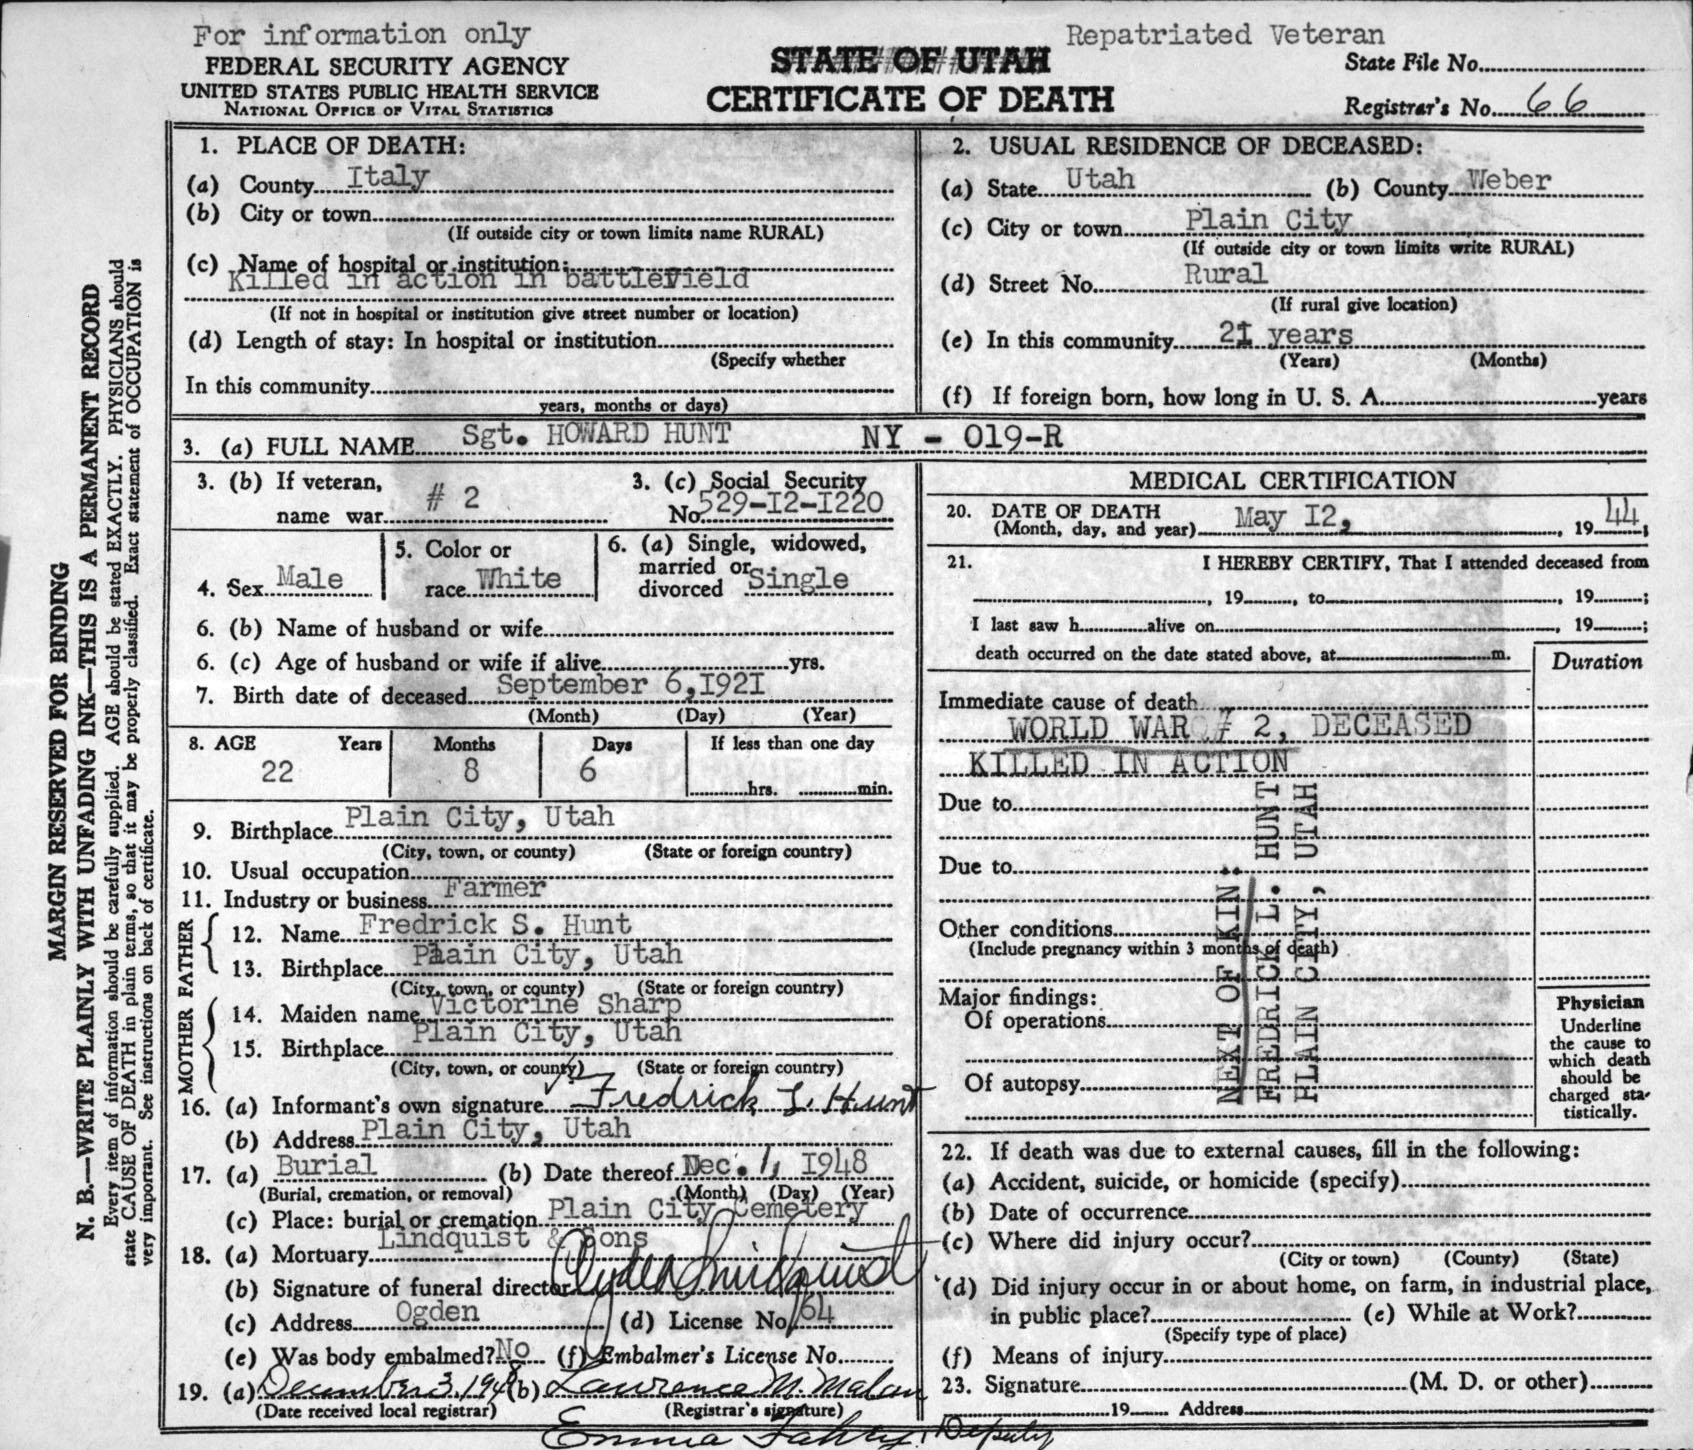 For information only
Repatriated Veteran
FEDERAL SECURITY AGENCY
UNITED STATES PUBLIC HEALTH SERVICE
NATIONAL OFFICE OF VITAL STATISTICS
STATE OF UTAH
CERTIFICATE OF DEATH
State File No.
Registrar's No. 66
MARGIN RESERVED FOR BINDING
N. B.—WRITE PLAINLY WITH UNFADING INK—THIS IS A PERMANENT RECORD
Every item of information should be carefully supplied. AGE should be stated EXACTLY. PHYSICIANS should
state CAUSE OF DEATH in plain terms, so that it may be properly classified. Exact statement of OCCUPATION is
very important. See instructions on back of certificate.
1. PLACE OF DEATH:
(a) County Italy
(b) City or town
(If outside city or town limits name RURAL)
(c) Name of hospital or institution:
Killed in action in battlefield
(If not in hospital or institution give street number or location)
(d) Length of stay: In hospital or institution
(Specify whether
In this community
years, months or days)
2. USUAL RESIDENCE OF DECEASED:
(a) State Utah (b) County Weber
(c) City or town Plain City
(If outside city or town limits write RURAL)
(d) Street No. Rural
(If rural give location)
(e) In this community 21 years
(Years) (Months)
(f) If foreign born, how long in U. S. A. years
3. (a) FULL NAME Sgt. HOWARD HUNT NY - 019-R
3. (b) If veteran,
name war # 2
3. (c) Social Security
No. 529-I2-I220
4. Sex Male
5. Color or
race White
6. (a) Single, widowed,
married or
divorced Single
6. (b) Name of husband or wife
6. (c) Age of husband or wife if alive yrs.
7. Birth date of deceased September 6,I92I
(Month) (Day) (Year)
8. AGE Years Months Days If less than one day
22 8 6
hrs. min.
9. Birthplace Plain City, Utah
(City, town, or county) (State or foreign country)
10. Usual occupation
11. Industry or business Farmer
FATHER
12. Name Fredrick S. Hunt
13. Birthplace Plain City, Utah
(City, town, or county) (State or foreign country)
MOTHER
14. Maiden name Victorine Sharp
15. Birthplace Plain City, Utah
(City, town, or county) (State or foreign country)
16. (a) Informant's own signature Fredrick L. Hunt
(b) Address Plain City, Utah
17. (a) Burial (b) Date thereof Dec. 1, I948
(Burial, cremation, or removal) (Month) (Day) (Year)
(c) Place: burial or cremation Plain City Cemetery
18. (a) Mortuary Lindquist & Sons
(b) Signature of funeral director Clyde Lindquist
(c) Address Ogden (d) License No. 64
(e) Was body embalmed? No (f) Embalmer's License No.
19. (a) December 3, 1948 (b) Lawrence M. Malan
(Date received local registrar) (Registrar's signature)
Emma Deputy
MEDICAL CERTIFICATION
20. DATE OF DEATH
(Month, day, and year) May I2, 1944;
21. I HEREBY CERTIFY, That I attended deceased from
, 19 , to , 19 ;
I last saw h alive on , 19 ;
death occurred on the date stated above, at m.
Duration
Immediate cause of death
WORLD WAR # 2, DECEASED
KILLED IN ACTION
Due to
Due to
Other conditions
(Include pregnancy within 3 months of death)
Major findings:
Of operations
Of autopsy
NEXT OF KIN:
FREDRICK L. HUNT
PLAIN CITY, UTAH
Physician
Underline
the cause to
which death
should be
charged sta-
tistically.
22. If death was due to external causes, fill in the following:
(a) Accident, suicide, or homicide (specify)
(b) Date of occurrence
(c) Where did injury occur?
(City or town) (County) (State)
(d) Did injury occur in or about home, on farm, in industrial place,
in public place? (e) While at Work?
(Specify type of place)
(f) Means of injury
23. Signature (M. D. or other)
19 Address